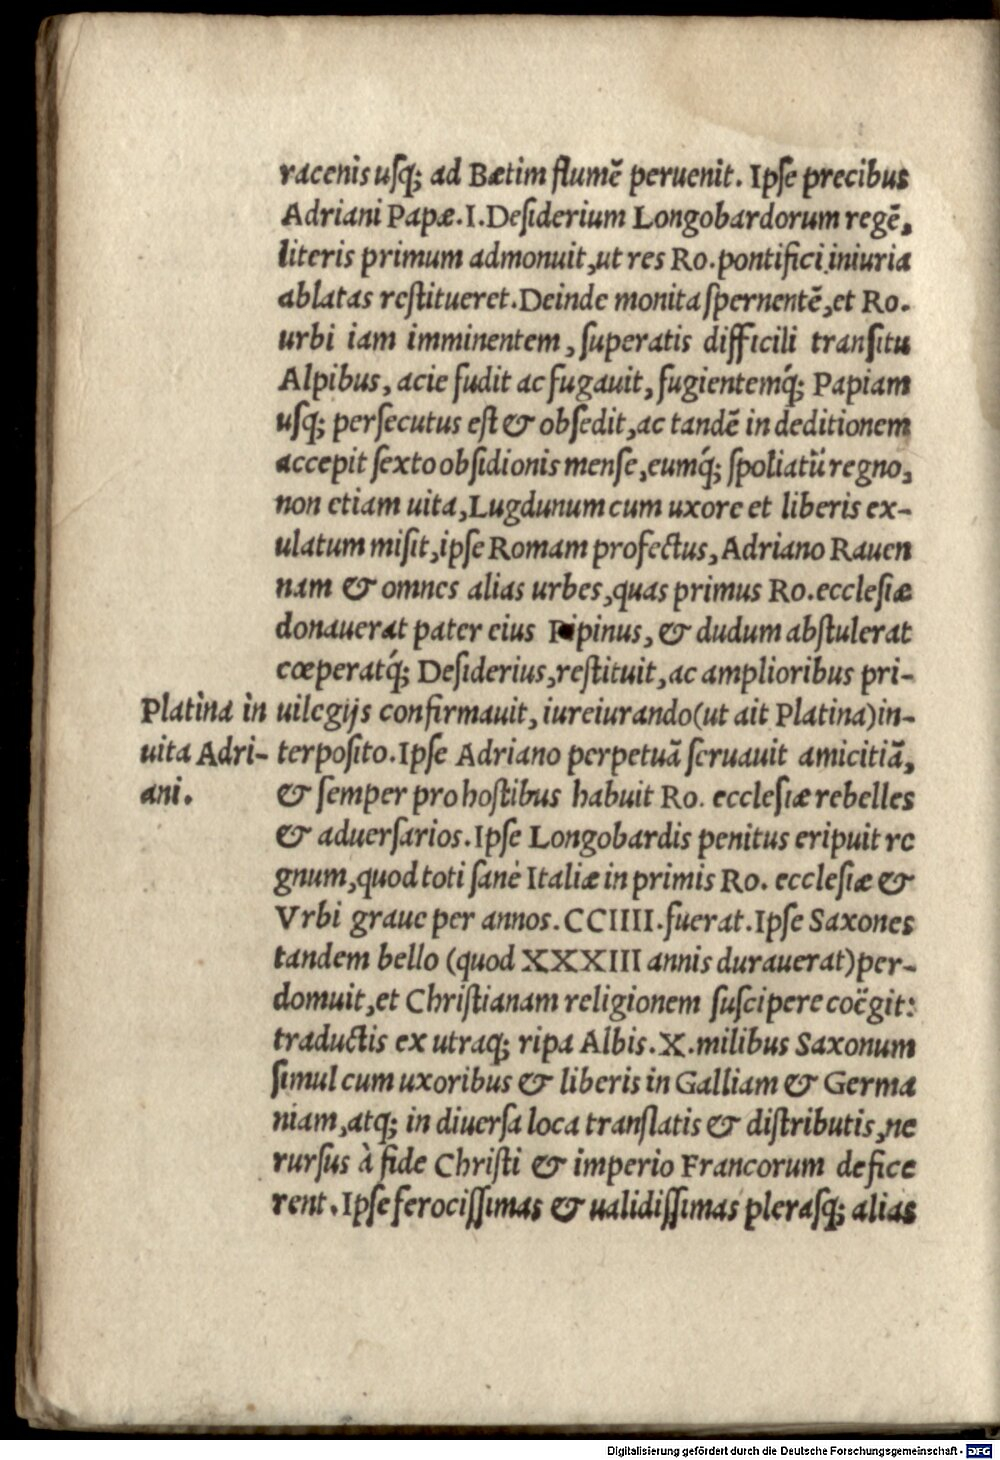 racenis usq; ad Bætim flumē peruenit. Ipse precibus
Adriani Papæ.I.Desiderium Longobardorum regē,
literis primum admonuit,ut res Ro.pontifici iniuria
ablatas restitueret.Deinde monita spernentē,et Ro.
urbi iam imminentem, superatis difficili transitu
Alpibus, acie fudit ac fugauit, fugientemq́; Papiam
usq; persecutus est & obsedit,ac tandē in deditionem
accepit sexto obsidionis mense,eumq́; spoliatū regno,
non etiam uita,Lugdunum cum uxore et liberis ex-
ulatum misit,ipse Romam profectus,Adriano Rauen
nam & omnes alias urbes,quas primus Ro.ecclesiæ
donauerat pater eius Pipinus, & dudum abstulerat
cœperatq́; Desiderius,restituit,ac amplioribus pri-
uilegijs confirmauit, iureiurando(ut ait Platina)in-
terposito.Ipse Adriano perpetuā seruauit amicitiā,
& semper pro hostibus habuit Ro. ecclesiæ rebelles
& aduersarios.Ipse Longobardis penitus eripuit re
gnum,quod toti sanè Italiæ in primis Ro. ecclesiæ &
Vrbi graue per annos.CCIIII.fuerat.Ipse Saxones
tandem bello (quod XXXIII annis durauerat)per-
domuit,et Christianam religionem suscipere coëgit:
traductis ex utraq; ripa Albis.X.milibus Saxonum
simul cum uxoribus & liberis in Galliam & Germa
niam,atq; in diuersa loca translatis & distributis,ne
rursus à fide Christi & imperio Francorum defice
rent.Ipse ferocissimas & ualidissimas plerasq; alias
Platina in
uita Adri-
ani.
Digitalisierung gefördert durch die Deutsche Forschungsgemeinschaft - DFG